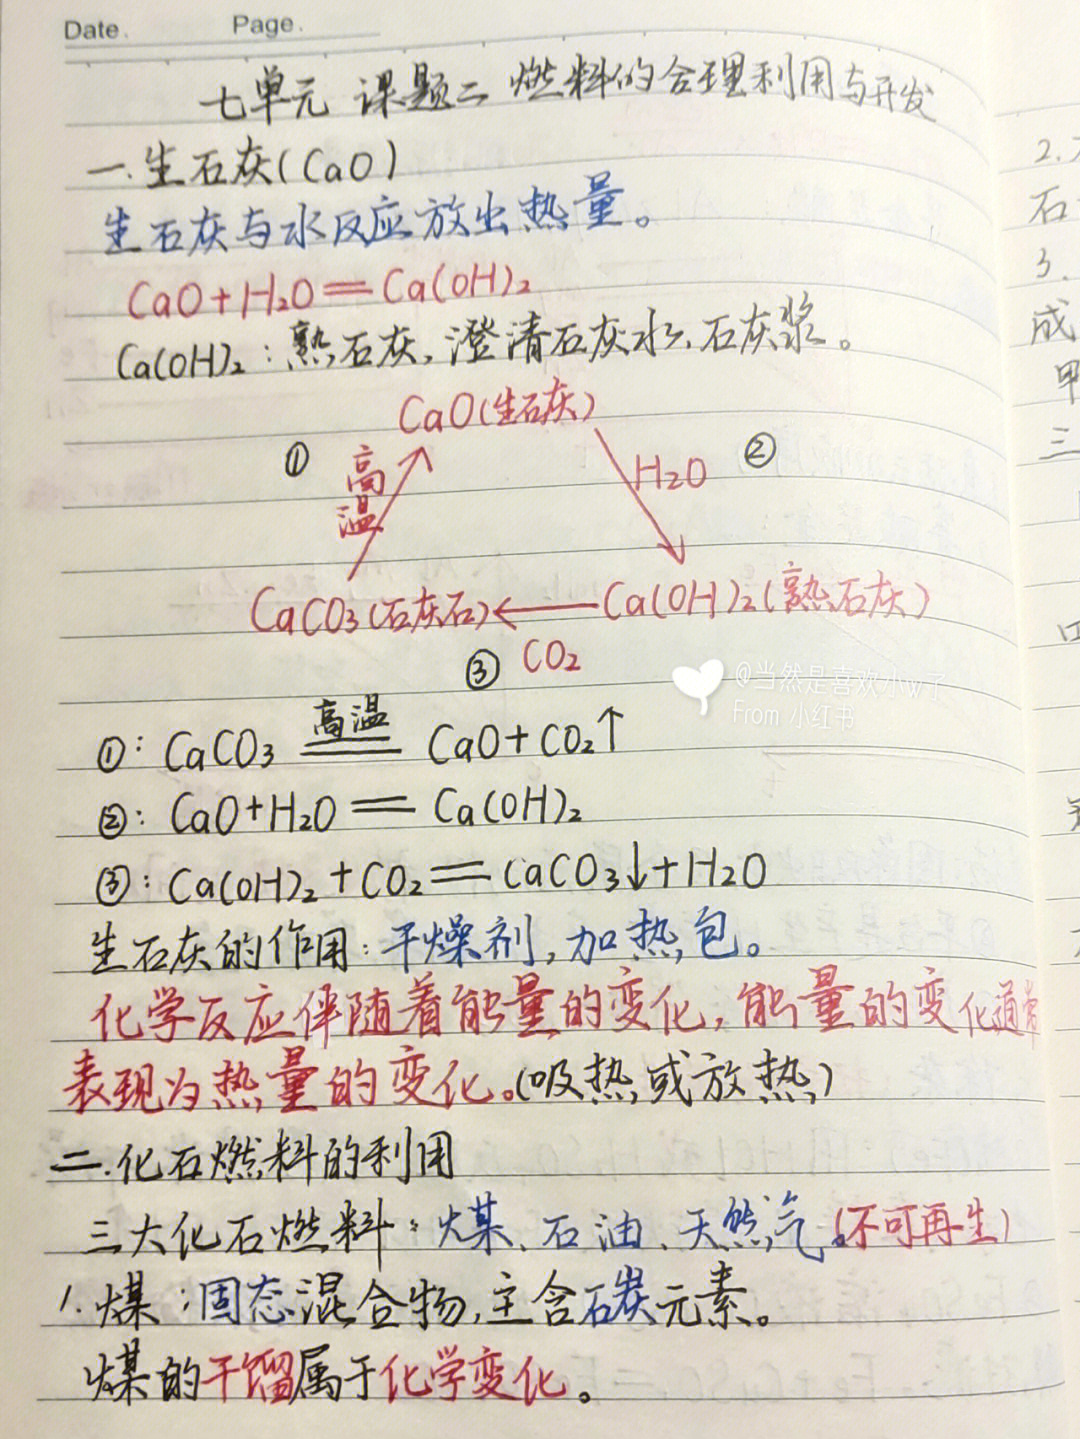 Date. Page.
七单元 课题二 燃料的合理利用与开发
一.生石灰(CaO)
生石灰与水反应放出热量。
CaO+H₂O=Ca(OH)₂
Ca(OH)₂:熟石灰,澄清石灰水,石灰浆。
CaO(生石灰)
① 高温 H₂O ②
CaCO₃(石灰石) Ca(OH)₂(熟石灰)
③ CO₂
@当然是喜欢小w了
From 小红书
①: CaCO₃ 高温 CaO+CO₂↑
②: CaO+H₂O=Ca(OH)₂
③: Ca(OH)₂+CO₂=CaCO₃↓+H₂O
生石灰的作用:干燥剂,加热包。
化学反应伴随着能量的变化,能量的变化通常
表现为热量的变化。(吸热或放热)
二.化石燃料的利用
三大化石燃料:煤、石油、天然气。(不可再生)
1.煤:固态混合物,主含碳元素。
煤的干馏属于化学变化。
2.
石
3.
成
甲
三